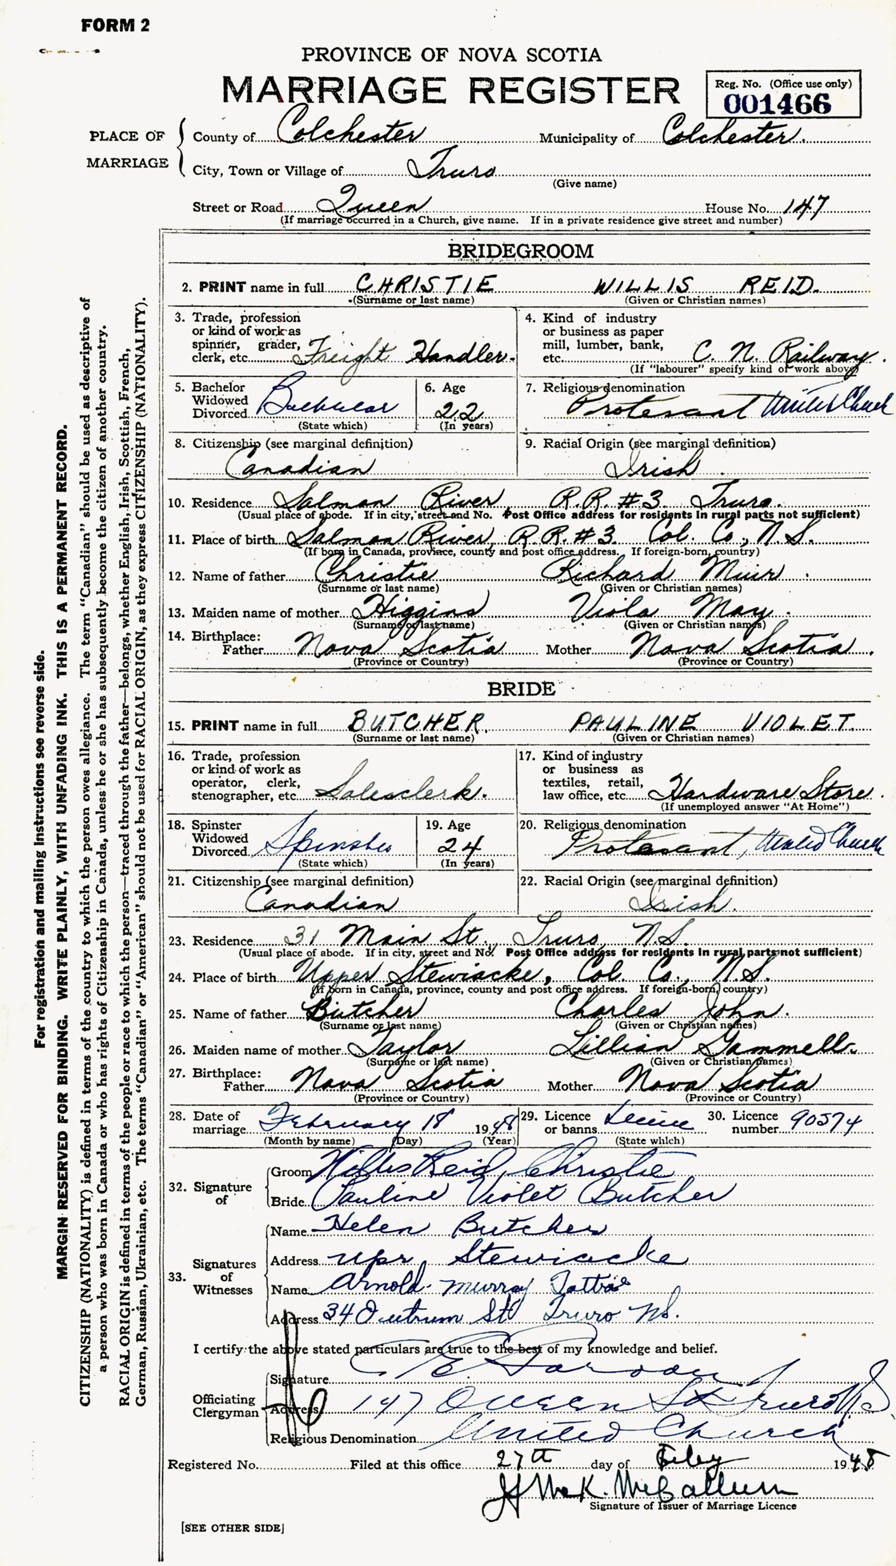 FORM 2
PROVINCE OF NOVA SCOTIA
MARRIAGE REGISTER
Reg. No. (Office use only)
001466
PLACE OF MARRIAGE
County of Colchester Municipality of Colchester.
City, Town or Village of Truro
(Give name)
Street or Road Queen House No. 147
(If marriage occurred in a Church, give name. If in a private residence give street and number)
BRIDEGROOM
2. PRINT name in full CHRISTIE WILLIS REID.
(Surname or last name) (Given or Christian names)
3. Trade, profession or kind of work as spinner, grader, clerk, etc. Freight Handler.
4. Kind of industry or business as paper mill, lumber, bank, etc. C. N. Railway.
(If "labourer" specify kind of work above)
5. Bachelor Widowed Divorced Bachelor
(State which)
6. Age 22
(In years)
7. Religious denomination Protestant United Church
8. Citizenship (see marginal definition) Canadian
9. Racial Origin (see marginal definition) Irish.
10. Residence Salmon River R.R. #3 Truro.
(Usual place of abode. If in city, street and No. Post Office address for residents in rural parts not sufficient)
11. Place of birth Salmon River, R.R. #3 Col. Co., N.S.
(If born in Canada, province, county and post office address. If foreign-born, country)
12. Name of father Christie Richard Muir.
(Surname or last name) (Given or Christian names)
13. Maiden name of mother Higgins Viola May.
(Surname or last name) (Given or Christian names)
14. Birthplace: Father Nova Scotia Mother Nova Scotia.
(Province or Country) (Province or Country)
BRIDE
15. PRINT name in full BUTCHER, PAULINE VIOLET.
(Surname or last name) (Given or Christian names)
16. Trade, profession or kind of work as operator, clerk, stenographer, etc. Salesclerk.
17. Kind of industry or business as textiles, retail, law office, etc. Hardware Store.
(If unemployed answer "At Home")
18. Spinster Widowed Divorced Spinster
(State which)
19. Age 24
(In years)
20. Religious denomination Protestant, United Church
21. Citizenship (see marginal definition) Canadian
22. Racial Origin (see marginal definition) Irish.
23. Residence 31 Main St., Truro, N.S.
(Usual place of abode. If in city, street and No. Post Office address for residents in rural parts not sufficient)
24. Place of birth Upper Stewiacke, Col. Co., N.S.
(If born in Canada, province, county and post office address. If foreign-born, country)
25. Name of father Butcher Charles John.
(Surname or last name) (Given or Christian names)
26. Maiden name of mother Taylor Lillian Gammell.
(Surname or last name) (Given or Christian names)
27. Birthplace: Father Nova Scotia Mother Nova Scotia
(Province or Country) (Province or Country)
28. Date of marriage February 18 1948
(Month by name) (Day) (Year)
29. Licence or banns Licence
(State which)
30. Licence number 90574
32. Signature of
Groom Willis Reid Christie
Bride Pauline Violet Butcher
33. Signatures of Witnesses
Name Helen Butcher
Address Upr Stewiacke
Name Arnold Murray Tattrie
Address 34 Outrum St Truro NS.
I certify the above stated particulars are true to the best of my knowledge and belief.
Officiating Clergyman
Signature
Address 147 Queen St Truro N.S.
Religious Denomination United Church
Registered No. Filed at this office 27th day of Feby 1948
H McK. McCallum
Signature of Issuer of Marriage Licence
[SEE OTHER SIDE]
For registration and mailing instructions see reverse side.
MARGIN RESERVED FOR BINDING. WRITE PLAINLY, WITH UNFADING INK. THIS IS A PERMANENT RECORD.
CITIZENSHIP (NATIONALITY) is defined in terms of the country to which the person owes allegiance. The term "Canadian" should be used as descriptive of
a person who was born in Canada or who has rights of Citizenship in Canada, unless he or she has subsequently become the citizen of another country.
RACIAL ORIGIN is defined in terms of the people or race to which the person—traced through the father—belongs, whether English, Irish, Scottish, French,
German, Russian, Ukrainian, etc. The terms "Canadian" or "American" should not be used for RACIAL ORIGIN, as they express CITIZENSHIP (NATIONALITY).